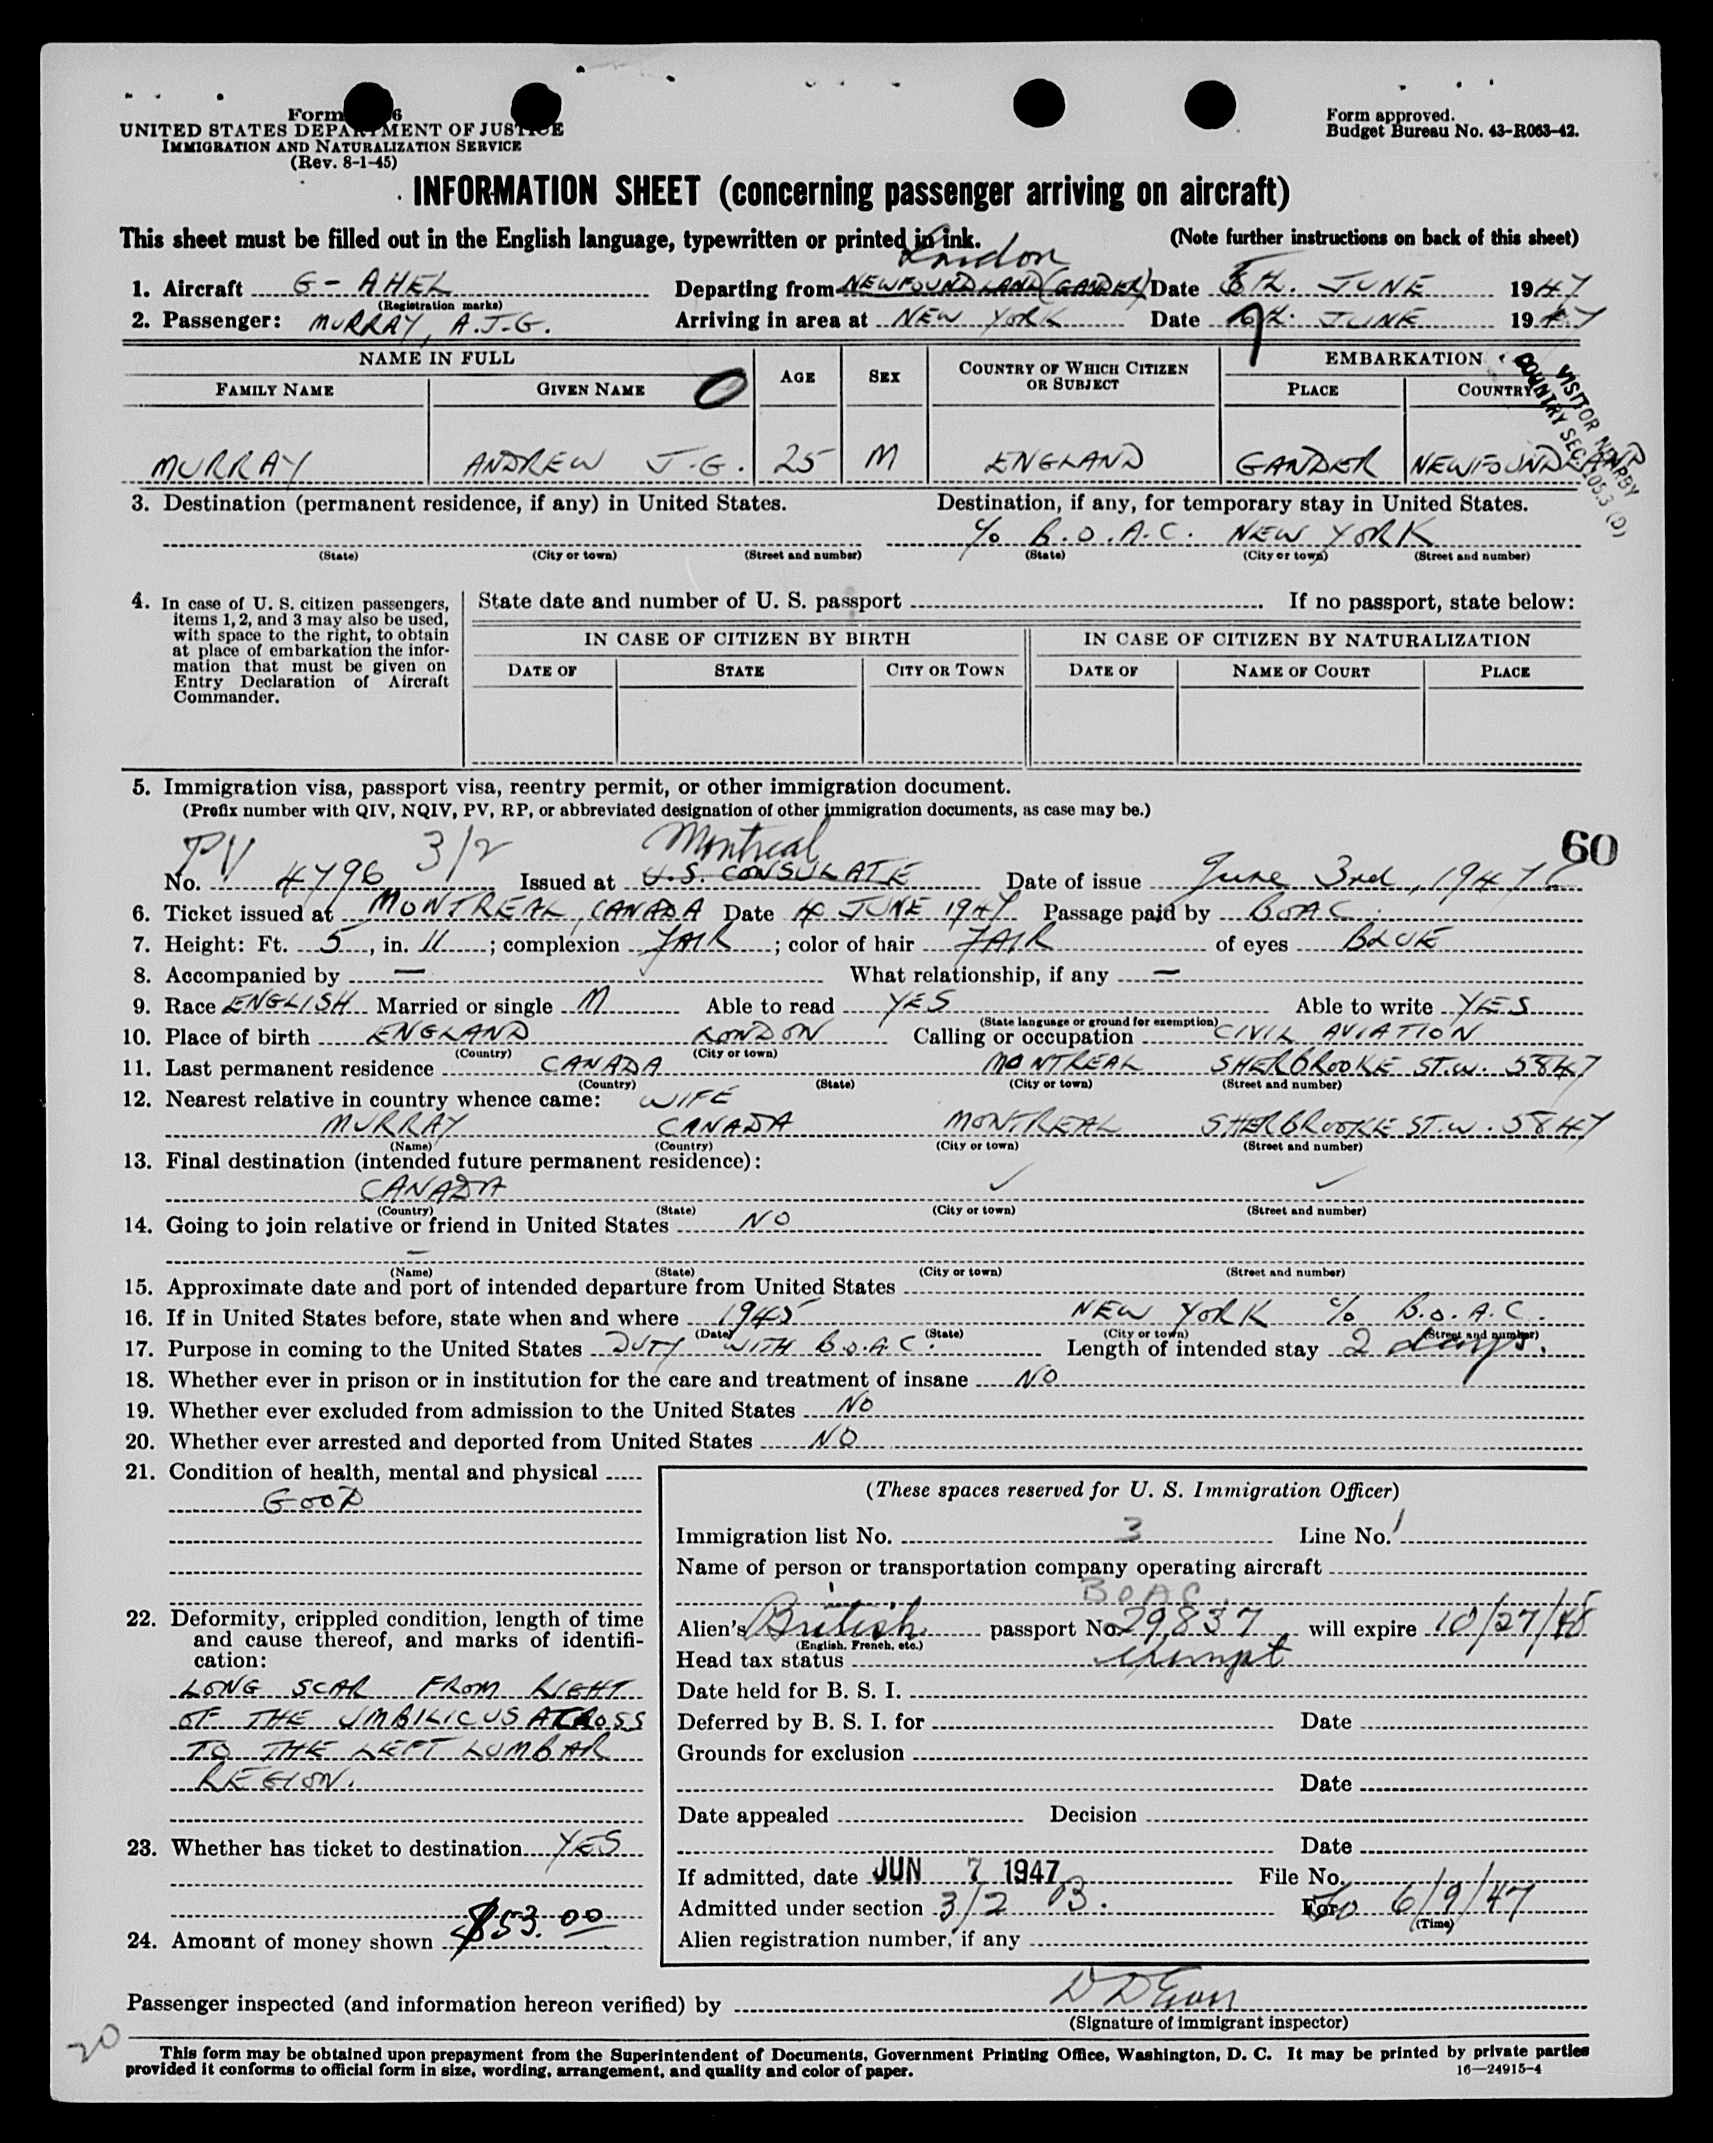 Form 6
UNITED STATES DEPARTMENT OF JUSTICE
IMMIGRATION AND NATURALIZATION SERVICE
(Rev. 8-1-45)
Form approved.
Budget Bureau No. 43-R063-42.
INFORMATION SHEET (concerning passenger arriving on aircraft)
This sheet must be filled out in the English language, typewritten or printed in ink. (Note further instructions on back of this sheet)
London
1. Aircraft G-AHEL Departing from NEWFOUNDLAND (GANDER) Date TH. JUNE 1947
(Registration marks)
2. Passenger: MURRAY, A.J.G. Arriving in area at NEW YORK Date 7 TH. JUNE 1947
NAME IN FULL AGE SEX COUNTRY OF WHICH CITIZEN OR SUBJECT EMBARKATION
FAMILY NAME GIVEN NAME 0 PLACE COUNTRY
VISITOR NEARBY
COUNTRY SEC. 105.3 (D)
MURRAY ANDREW J.G. 25 M ENGLAND GANDER NEWFOUNDLAND
3. Destination (permanent residence, if any) in United States. Destination, if any, for temporary stay in United States.
c/o B.O.A.C. NEW YORK
(State) (City or town) (Street and number) (State) (City or town) (Street and number)
4. In case of U. S. citizen passengers, items 1, 2, and 3 may also be used, with space to the right, to obtain at place of embarkation the information that must be given on Entry Declaration of Aircraft Commander.
State date and number of U. S. passport If no passport, state below:
IN CASE OF CITIZEN BY BIRTH IN CASE OF CITIZEN BY NATURALIZATION
DATE OF STATE CITY OR TOWN DATE OF NAME OF COURT PLACE
5. Immigration visa, passport visa, reentry permit, or other immigration document.
(Prefix number with QIV, NQIV, PV, RP, or abbreviated designation of other immigration documents, as case may be.)
60
PV 3/2 Montreal
No. 4796 Issued at U.S. CONSULATE Date of issue June 3rd, 1947
6. Ticket issued at MONTREAL, CANADA Date JUNE 1947 Passage paid by BOAC.
7. Height: Ft. 5, in. 11; complexion FAIR; color of hair FAIR of eyes BLUE
8. Accompanied by — What relationship, if any —
9. Race ENGLISH Married or single M Able to read YES Able to write YES
(State language or ground for exemption)
10. Place of birth ENGLAND LONDON Calling or occupation CIVIL AVIATION
(Country) (City or town)
11. Last permanent residence CANADA MONTREAL SHERBROOKE ST.W. 5847
(Country) (State) (City or town) (Street and number)
12. Nearest relative in country whence came: WIFE
MURRAY CANADA MONTREAL SHERBROOKE ST.W. 5847
(Name) (Country) (City or town) (Street and number)
13. Final destination (intended future permanent residence):
CANADA ✓ ✓
(Country) (State) (City or town) (Street and number)
14. Going to join relative or friend in United States NO
—
(Name) (State) (City or town) (Street and number)
15. Approximate date and port of intended departure from United States
16. If in United States before, state when and where 1945 NEW YORK c/o B.O.A.C.
(Date) (State) (City or town) (Street and number)
17. Purpose in coming to the United States DUTY WITH B.O.A.C. Length of intended stay 2 days.
18. Whether ever in prison or in institution for the care and treatment of insane NO
19. Whether ever excluded from admission to the United States NO
20. Whether ever arrested and deported from United States NO
21. Condition of health, mental and physical
GOOD
22. Deformity, crippled condition, length of time and cause thereof, and marks of identification:
LONG SCAR FROM RIGHT
OF THE UMBILICUS ACROSS
TO THE LEFT LUMBAR
REGION.
23. Whether has ticket to destination YES
24. Amount of money shown $53.00
(These spaces reserved for U. S. Immigration Officer)
Immigration list No. 3 Line No. 1
Name of person or transportation company operating aircraft
BOAC.
Alien's British passport No. 29837 will expire 10/27/48
(English, French, etc.)
Head tax status exempt
Date held for B. S. I.
Deferred by B. S. I. for Date
Grounds for exclusion
Date
Date appealed Decision
Date
If admitted, date JUN 7 1947 File No.
Admitted under section 3/2 B. For to 6/9/47
(Time)
Alien registration number, if any
Passenger inspected (and information hereon verified) by
(Signature of immigrant inspector)
20
This form may be obtained upon prepayment from the Superintendent of Documents, Government Printing Office, Washington, D. C. It may be printed by private parties
provided it conforms to official form in size, wording, arrangement, and quality and color of paper. 16—24915-4